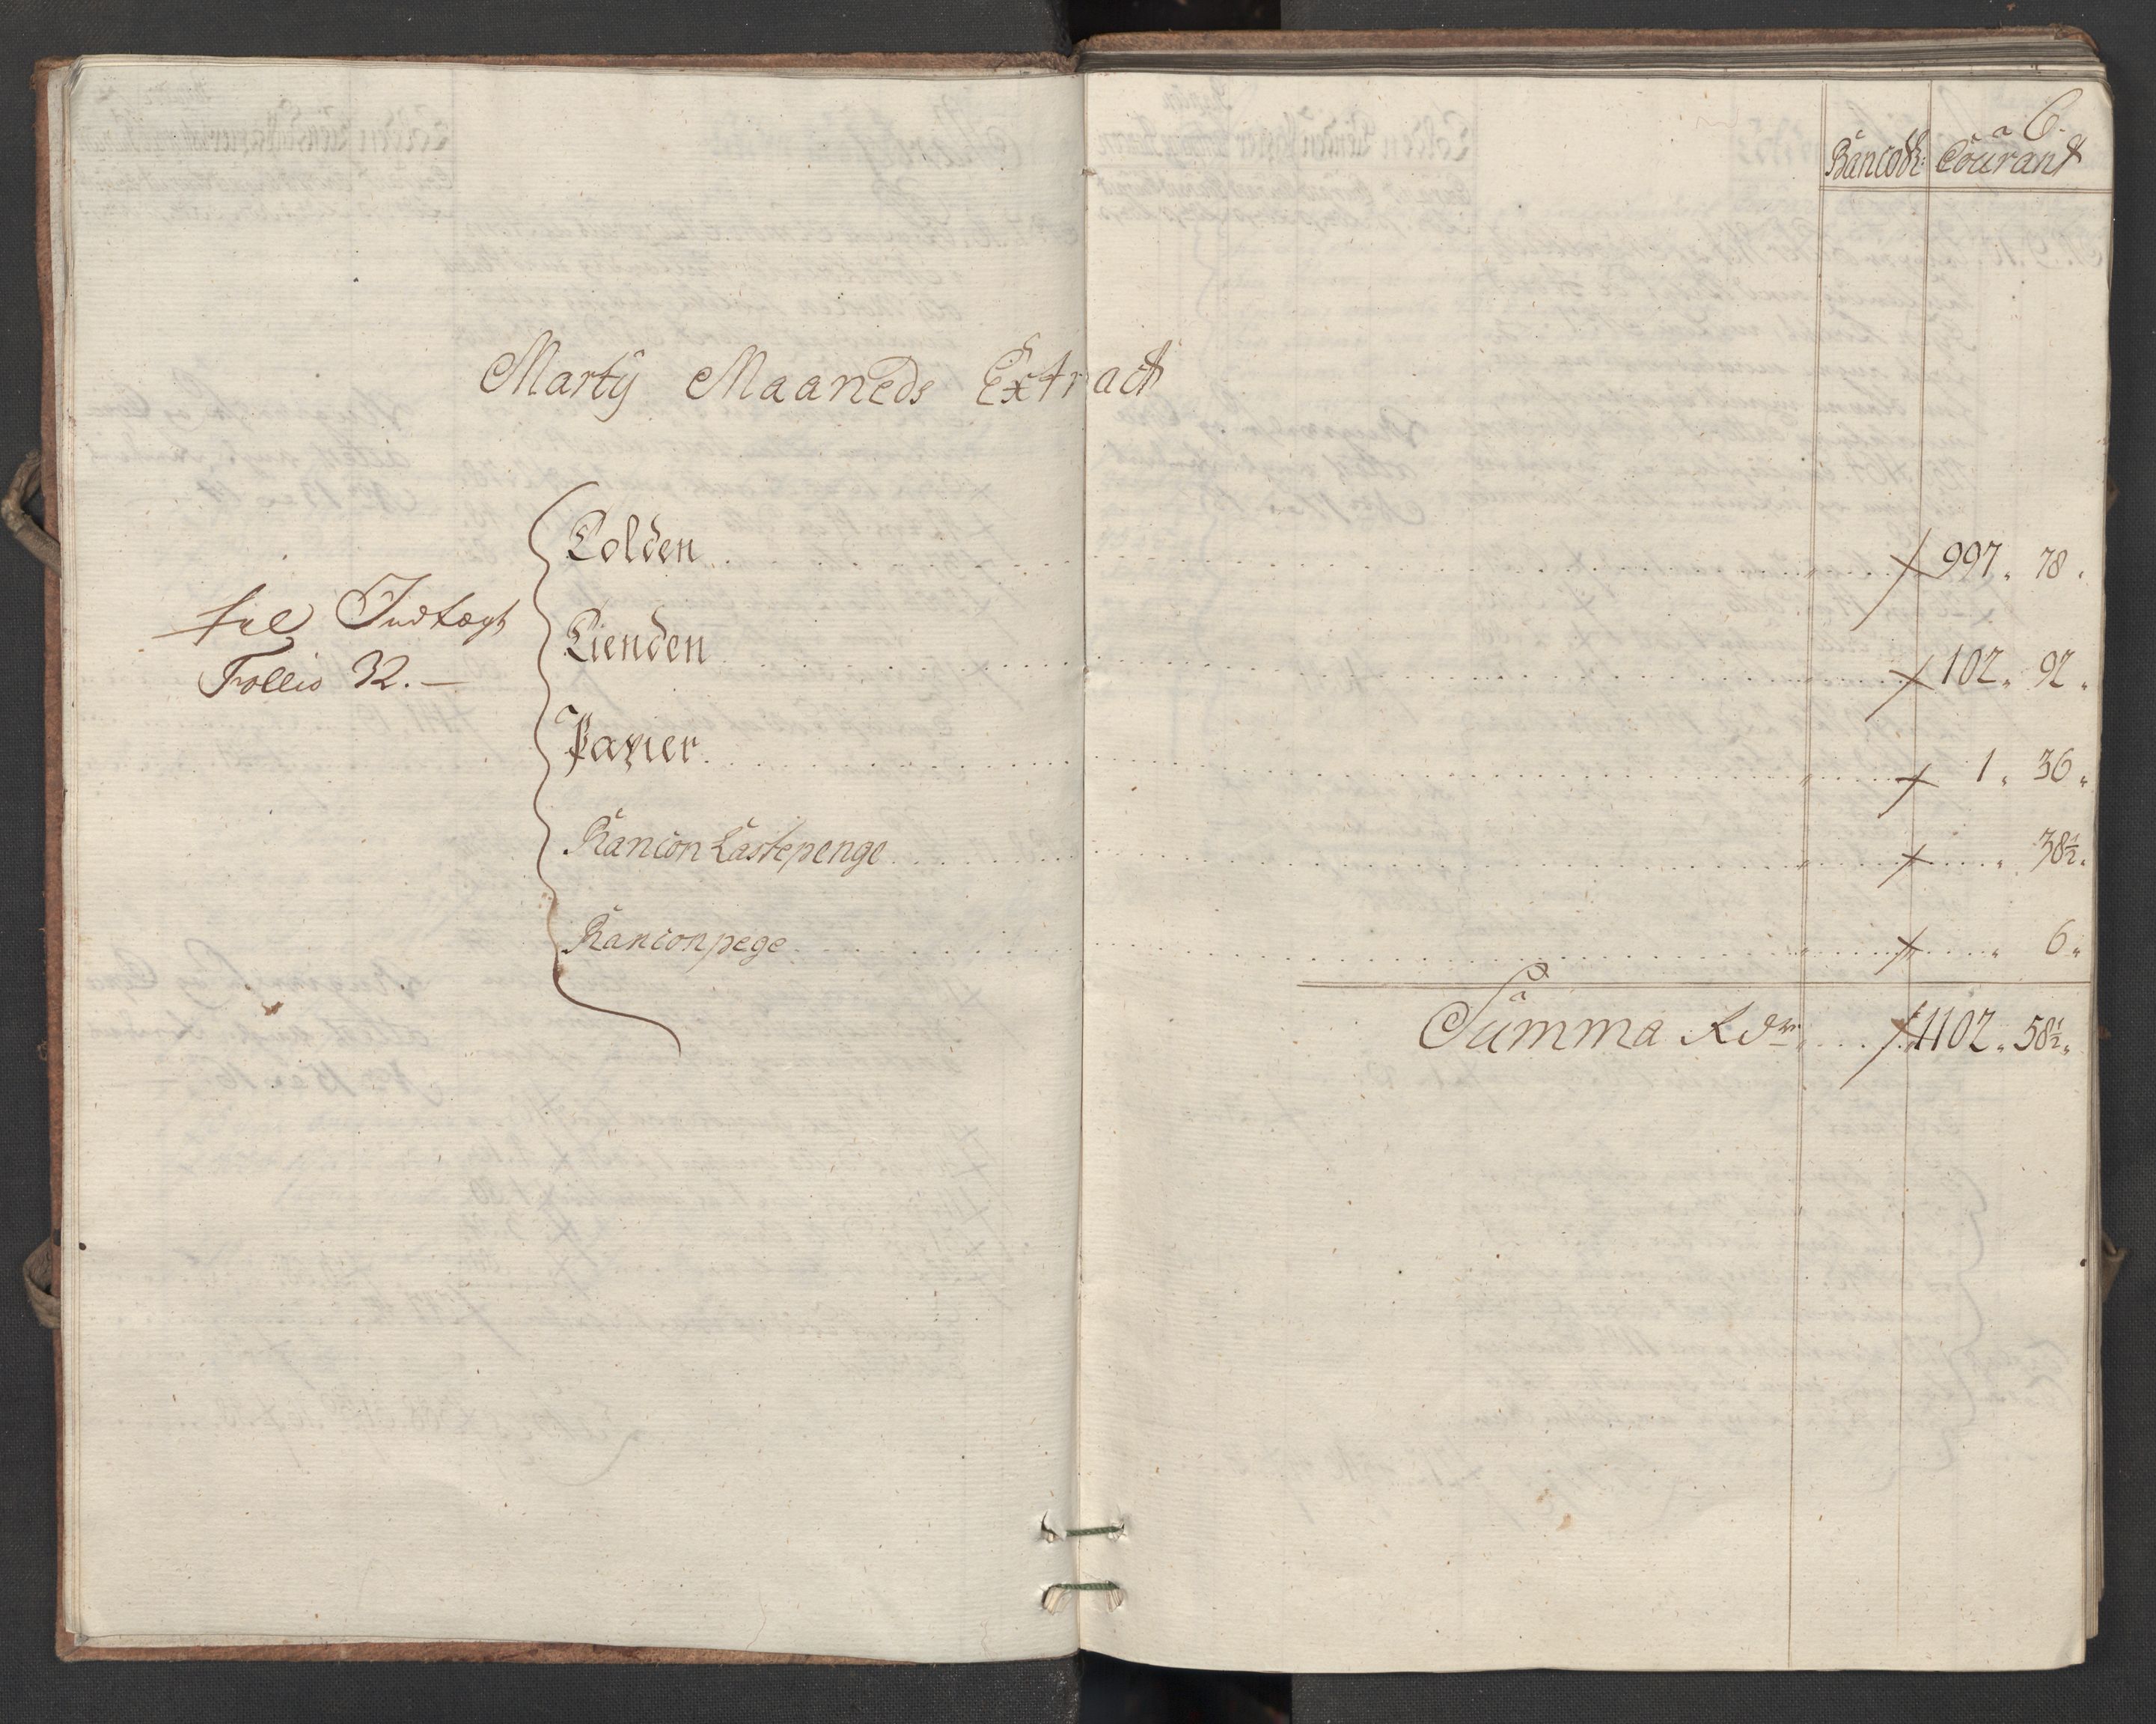 6.
Banco Courant
Martÿ Maaneds Extract
Tolden . . . 997 " 78 "
til Indtægt
Tienden . . . 102 " 92 "
Follio 32. —
Papier . . . 1 " 36 "
Rancon Lastepenge . . . " 38½ "
Ranconpege . . . " 6 "
Summa Rdr . . . 1102 " 58½ "